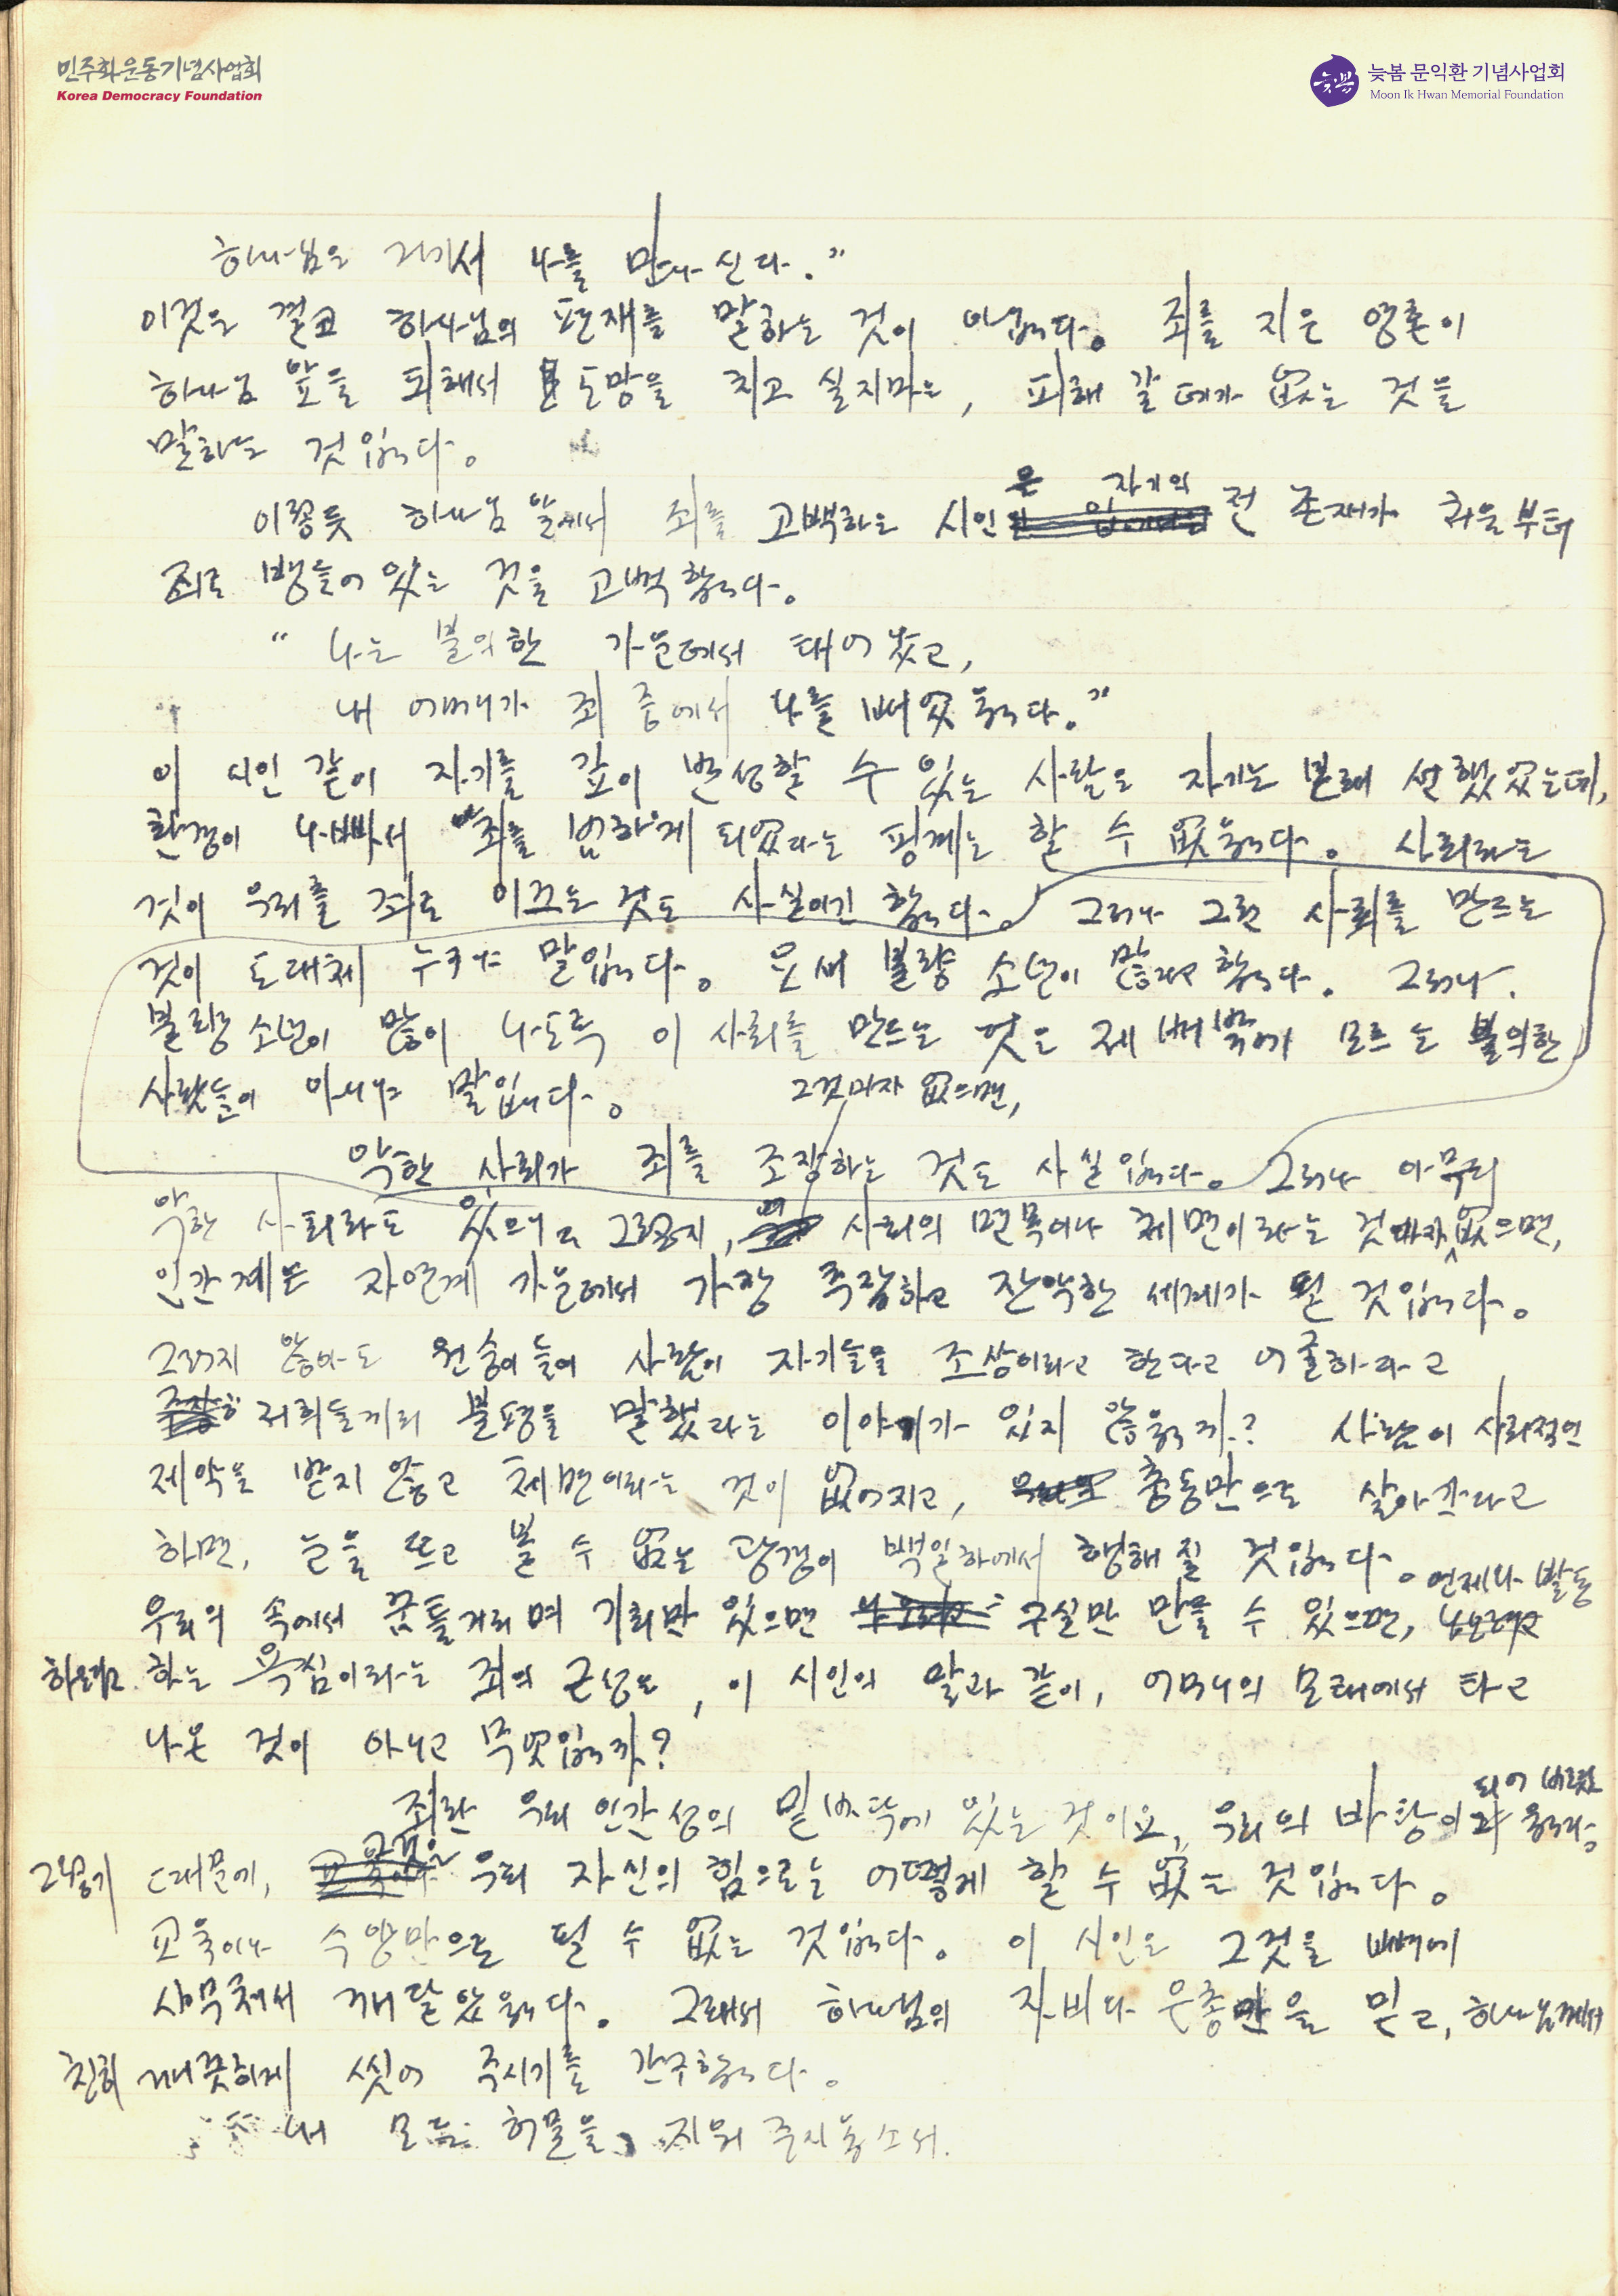 민주화운동기념사업회
Korea Democracy Foundation
늦봄 문익환 기념사업회
Moon Ik Hwan Memorial Foundation
하나님은 거기서 나를 만나신다."
이것은 결코 하나님의 편재를 말하는 것이 아닙니다. 죄를 지은 영혼이
하나님 앞을 피해서 도망을 치고 싶지마는, 피해 갈 데가 없는 것을
말하는 것입니다.
은 자기의
이렇듯 하나님 앞에서 죄를 고백하는 시인 전 존재가 처음부터
죄로 병들어 있는 것을 고백합니다.
" 나는 불의한 가운데서 태어났고,
내 어머니가 죄 중에서 나를 배었읍니다."
이 시인 같이 자기를 깊이 반성할 수 있는 사람은 자기는 본래 선했었는데,
환경이 나빠서 죄를 범하게 되었다는 핑계는 할 수 없읍니다. 사회라는
것이 우리를 죄로 이끄는 것도 사실이긴 합니다. 그러나 그런 사회를 만드는
것이 도대체 누구냐 말입니다. 요새 불량 소년이 많다고 합니다. 그러나
불량 소년이 많이 나도록 이 사회를 만드는 것은 제 배밖에 모르는 불의한
사람들이 아니냐 말입니다.
그것마자 없으면,
악한 사회가 죄를 조장하는 것도 사실입니다. 그러나 아무리
악한 사회라도 있으니 그렇지, 이 사회의 면목이나 체면이라는 것마자 없으면,
인간계는 자연계 가운데서 가장 추잡하고 잔악한 세계가 될 것입니다.
그렇지 않아도 원숭이들이 사람이 자기들을 조상이라고 한다고 억울하다고
저희들끼리 불평을 말했다는 이야기가 있지 않읍니까? 사람이 사회적인
제약을 받지 않고 체면이라는 것이 없어지고, 충동만으로 살아간다고
하면, 눈을 뜨고 볼 수 없는 광경이 백일하에서 행해질 것입니다.
언제나 발동
우리의 속에서 꿈틀거리며 기회만 있으면 구실만 만들 수 있으면,
하려고 하는 욕심이라는 죄의 근성은, 이 시인의 말과 같이, 어머니의 모태에서 타고
나온 것이 아니고 무엇입니까?
되어 버렸
죄란 우리 인간성의 밑바닥에 있는 것이요, 우리의 바탕이 읍니다.
그것은
그렇기 때문에, 우리 자신의 힘으로는 어떻게 할 수 없는 것입니다.
교육이나 수양만으로 될 수 없는 것입니다. 이 시인은 그것을 뼈에
사무쳐서 깨달았읍니다. 그래서 하나님의 자비와 은총만을 믿고, 하나님께서
친히 깨끗하게 씻어 주시기를 간구합니다.
내 모든 허물을 지워 주시옵소서.